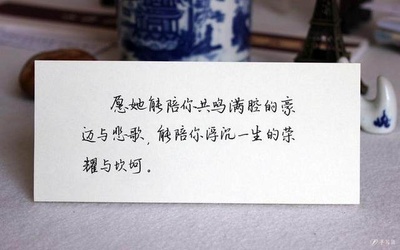 愿她能陪你共鸣满腔的豪
迈与悲歌,能陪你浮沉一生的荣
耀与坎坷。